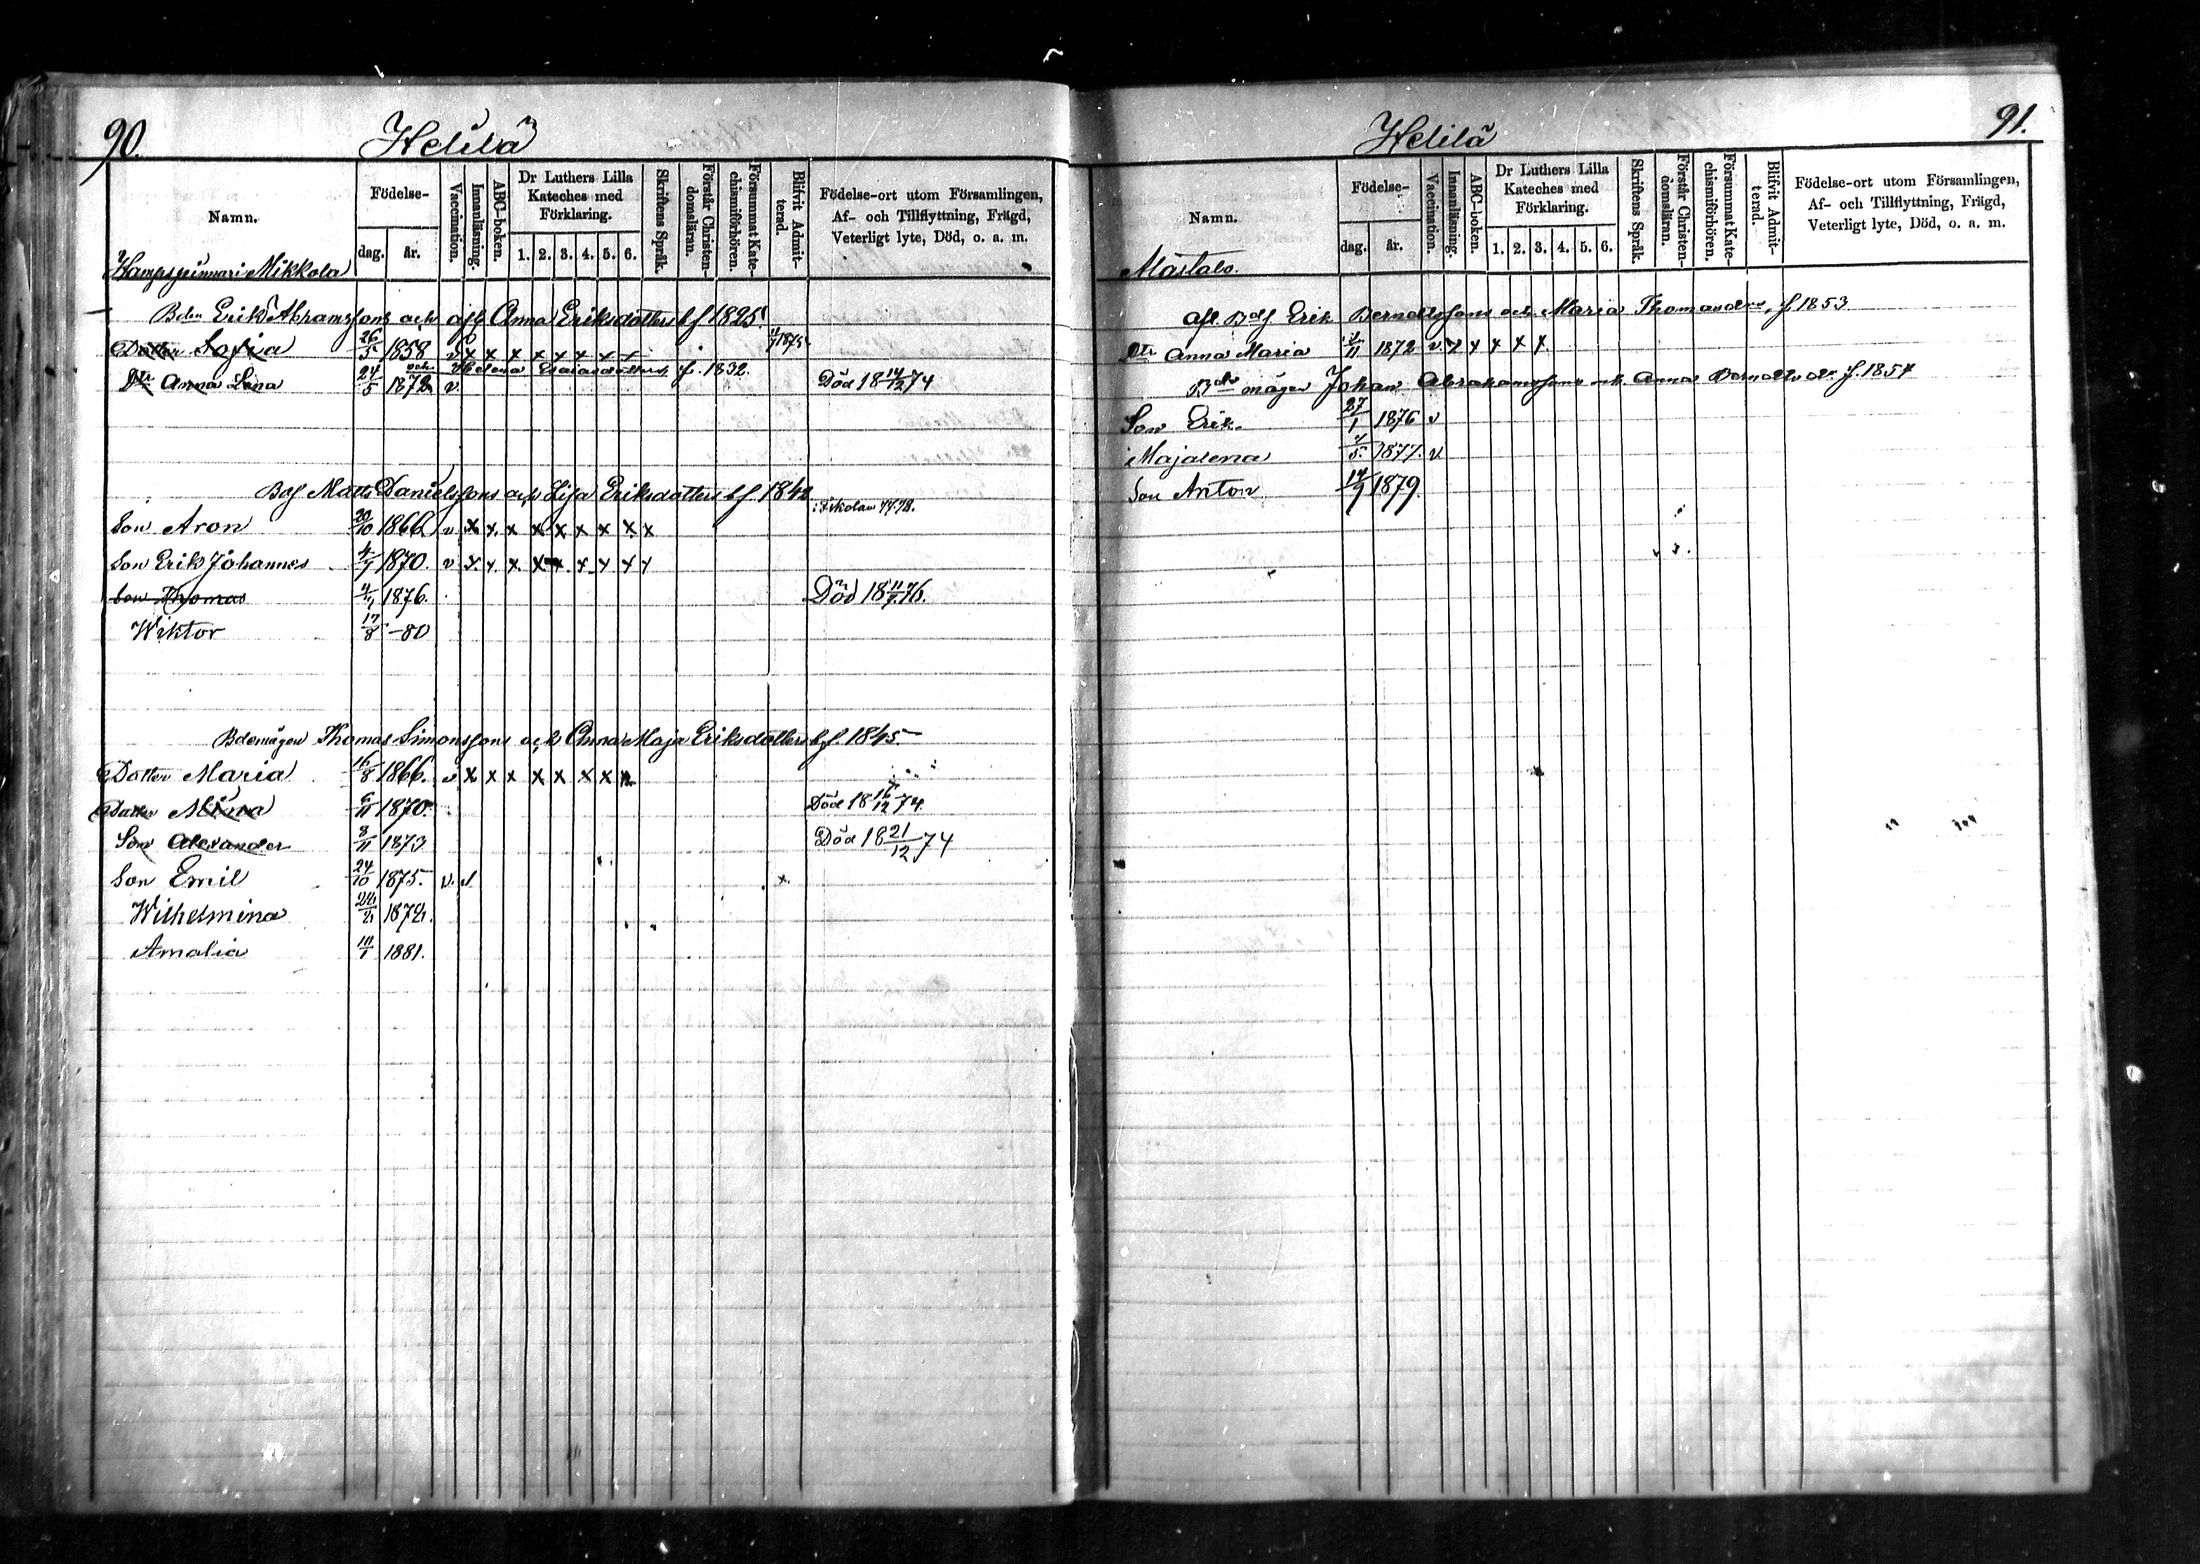 90.
Helilä
Namn.
Födelse-
dag.
år.
Vaccination.
Innanläsning.
ABC-boken.
Dr Luthers Lilla
Kateches med
Förklaring.
1. 2. 3. 4. 5. 6.
Skriftens Språk.
Förstår Christen-
domsläran.
Försummat Kate-
chismiförhören.
Blifvit Admit-
terad.
Födelse-ort utom Församlingen,
Af- och Tillflyttning, Frägd,
Veterligt lyte, Död, o. a. m.
Hampspinnari Mikkola
Bden Erik Abramssons och afl Anna Eriksdotters b f 1825.
Dotter Sofia 26/5 1858 v x x x x x x x x 1875
och Helena Esaiasdotters, f. 1832.
Dtr Anna Lena 24/5 1872 v. Död 18 14/12 74
Bds Matts Danielssons och Lisa Eriksdotters b f. 1842
i Skolan 77.78.
Son Aron 20/10 1866. v x x x x x x x x x
Son Erik Johannes 4/7 1870. v x x x x x x x x x
Son Thomas 4/4 1876. Död 18 11/7 76.
Wiktor 17/8 -80
Bdemågen Thomas Simonssons och Anna Maja Eriksdotters b f. 1845.
Dotter Maria 16/8 1866. v x x x x x x x x
Dotter Mina 6/11 1870. Död 18 16/12 74.
Son Alexander 8/11 1873 Död 18 21/12 74
Son Emil 24/10 1875. v. v x
Wilhelmina 1878.
Amalia 1881.
91.
Helilä
Namn.
Födelse-
dag.
år.
Vaccination.
Innanläsning.
ABC-boken.
Dr Luthers Lilla
Kateches med
Förklaring.
1. 2. 3. 4. 5. 6.
Skriftens Språk.
Förstår Christen-
domsläran.
Försummat Kate-
chismiförhören.
Blifvit Admit-
terad.
Födelse-ort utom Församlingen,
Af- och Tillflyttning, Frägd,
Veterligt lyte, Död, o. a. m.
Mastala.
afl. Bds Erik Berndtssons och Maria Thomasdrs, f. 1853
Dtr Anna Maria 1872 v. x x x x x
Bds mågen Johan Abrahamssons och Anna Berndtsdr. f. 1854
Son Erik 27/1 1876 v
Majalena 1877. v
Son Anton 14/9 1879.